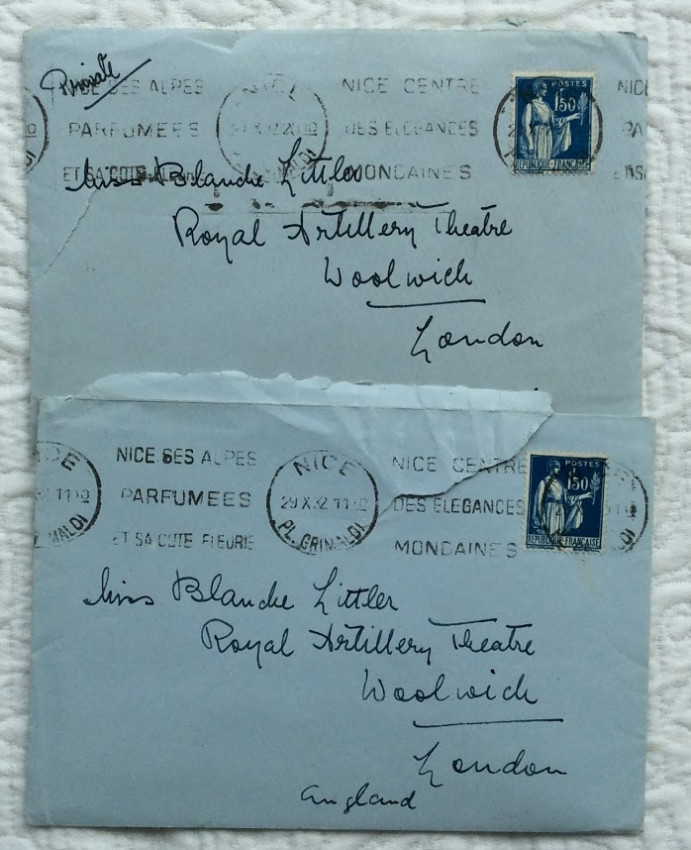 Private
NICE SES ALPES
PARFUMEES
ET SA COTE
NICE
NICE CENTRE
DES ELEGANCES
MONDAINES
POSTES
1F50
REPUBLIQUE FRANÇAISE
NIC
PA
ET SA
Miss Blanche Littler
Royal Artillery Theatre
Woolwich
London
NICE SES ALPES
PARFUMEES
ET SA COTE FLEURIE
NICE
29 X.32 11 10
PL. GRIMALDI
NICE CENTRE
DES ELEGANCES
MONDAINES
POSTES
1F50
REPUBLIQUE FRANÇAISE
Miss Blanche Littler
Royal Artillery Theatre
Woolwich
London
England